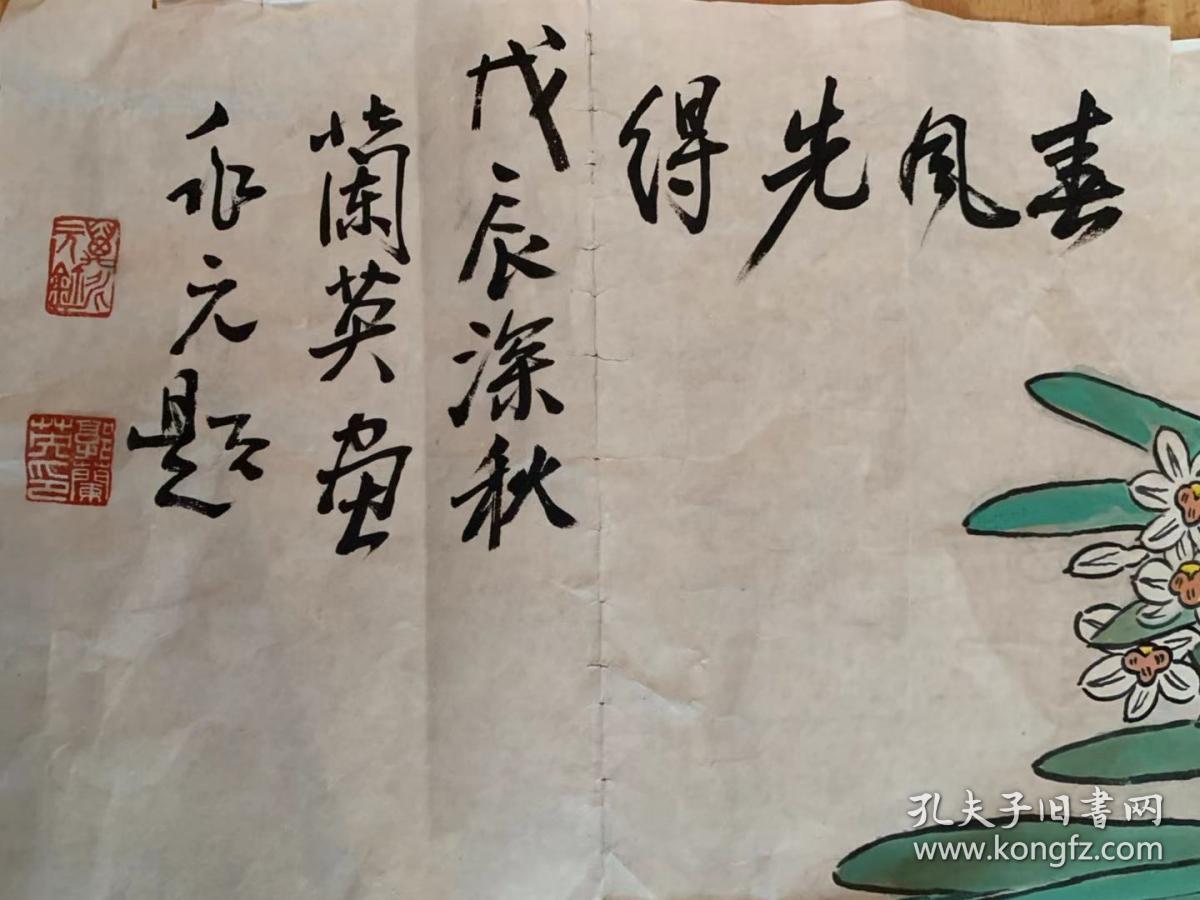 春风先得
戊辰深秋
蘭英画
永元题
郭蘭英印
孔夫子旧书网
www.kongfz.com